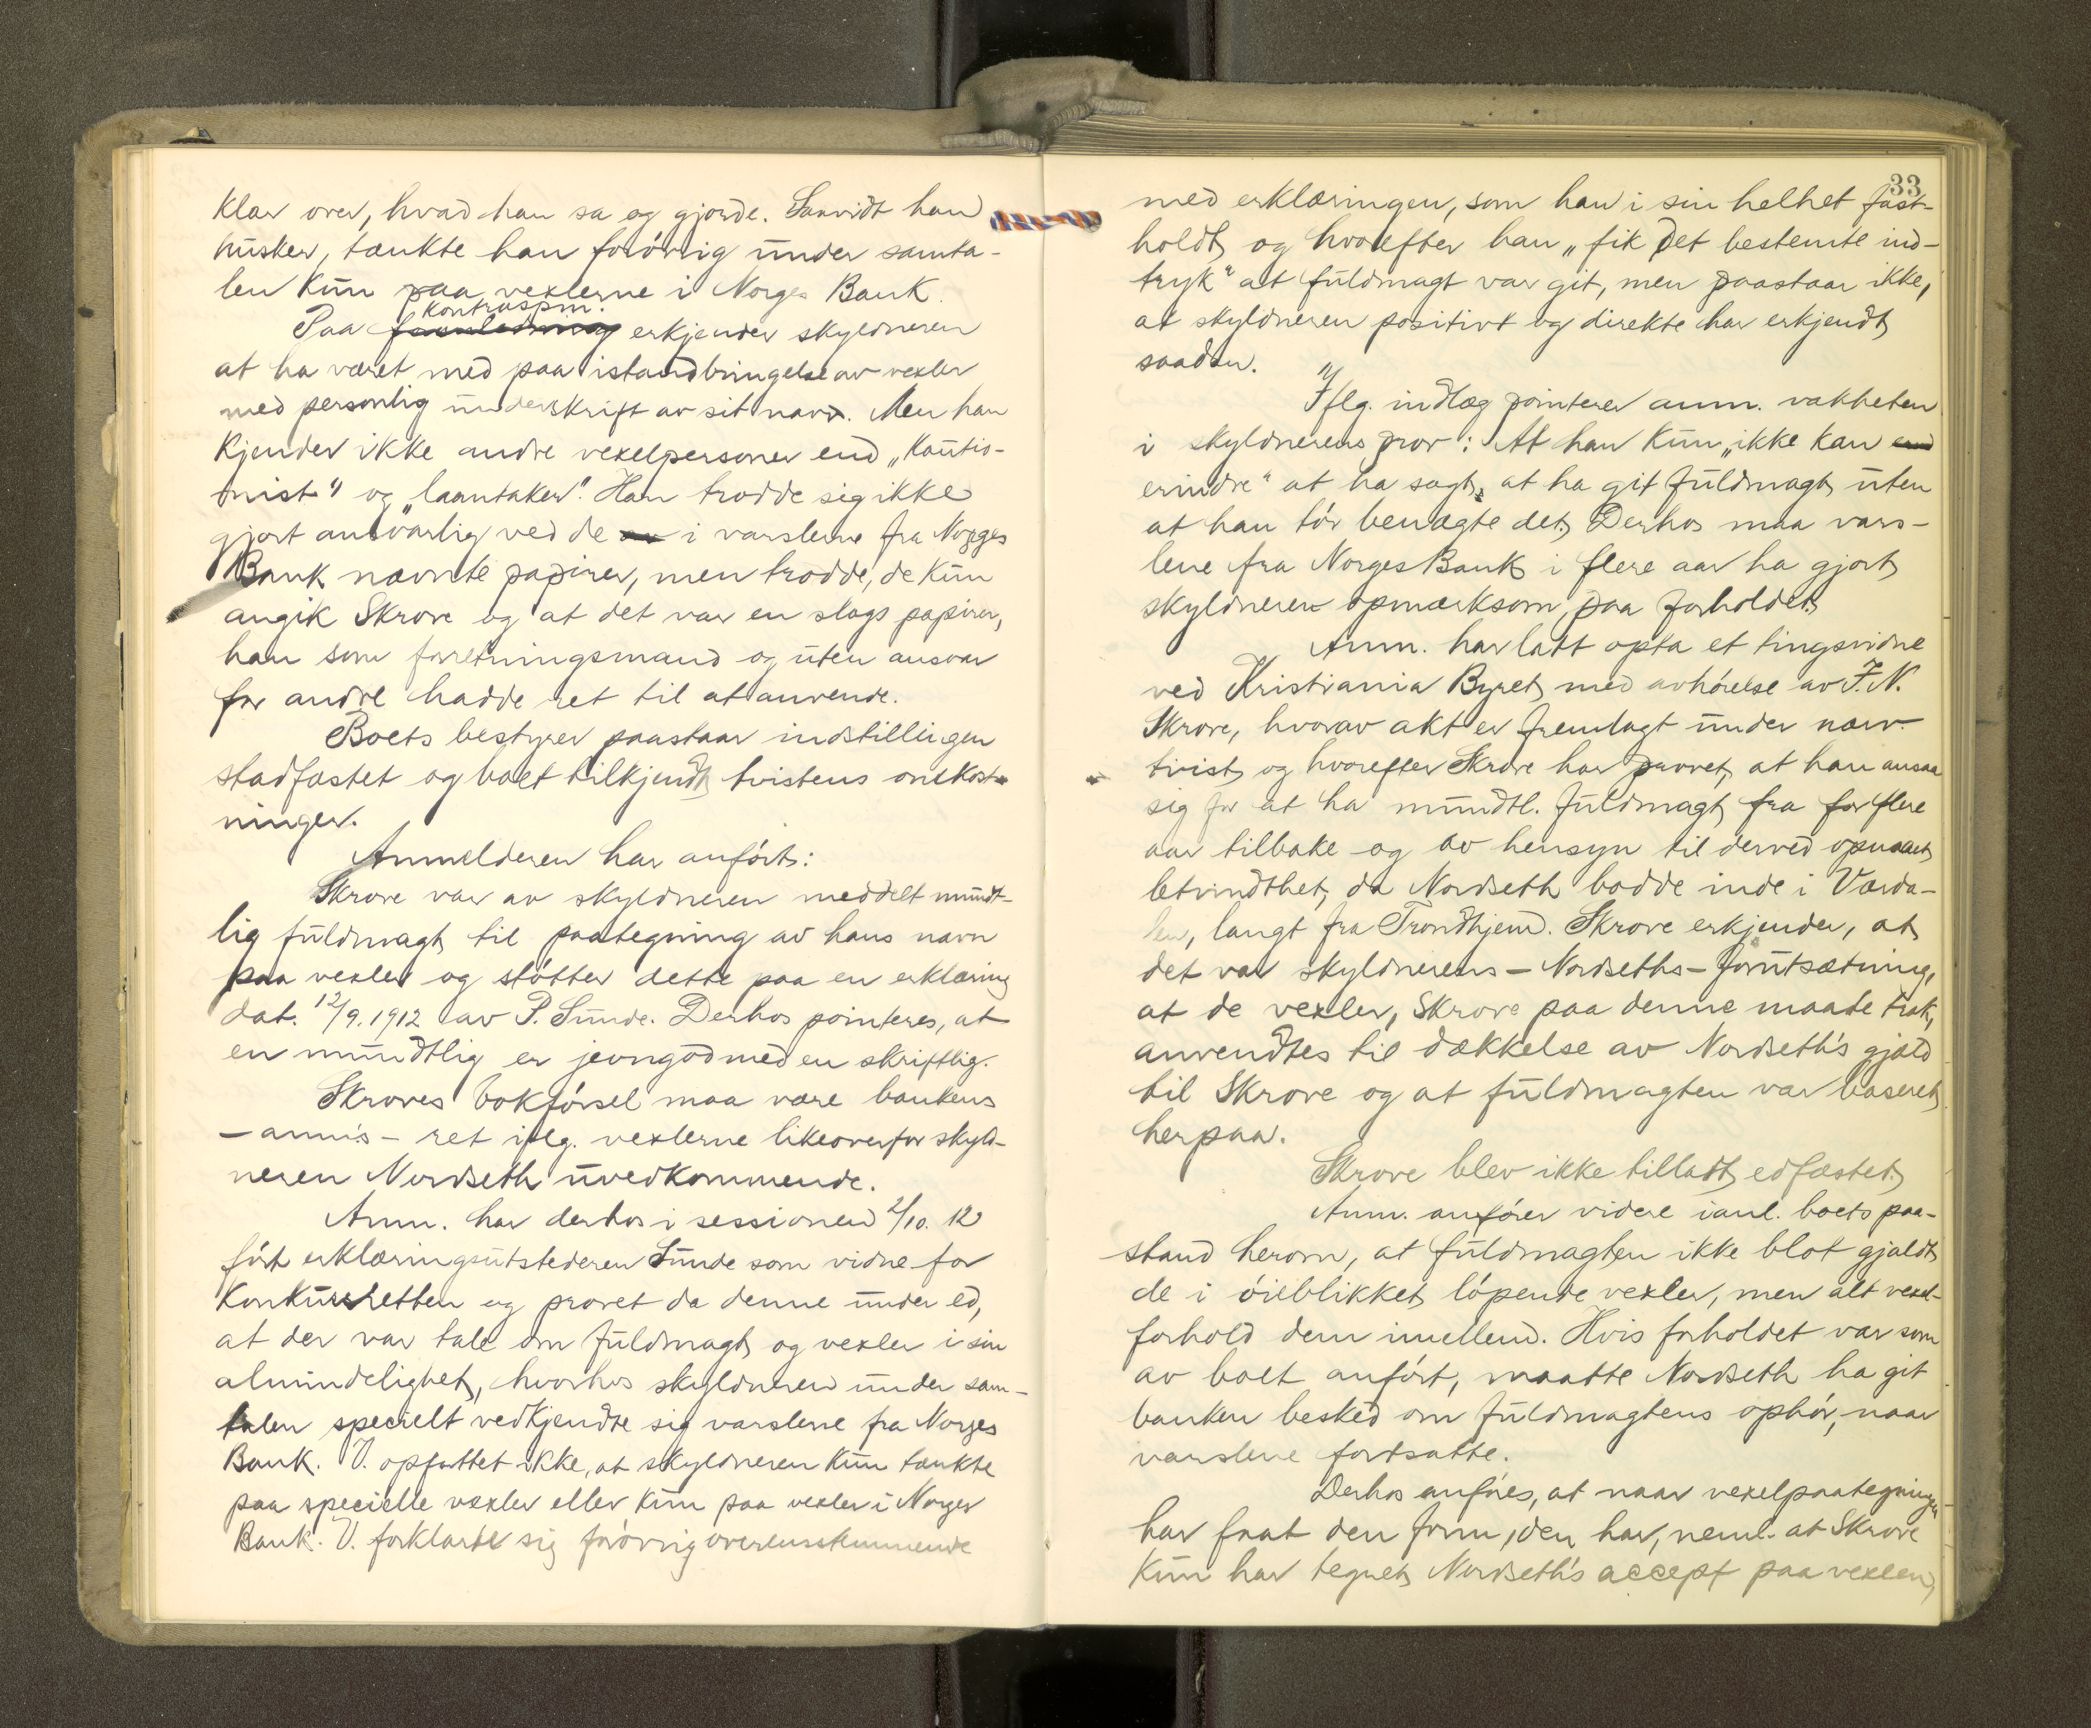 klar over, hvad han sa og gjorde. Saavidt han
husker, tænkte han forövrig under samta-
len kun paa vexlerne i Norges Bank.
kontraspm.
Paa erkjender skyldneren
at ha været med paa istandbringelse av vexler
med personlig underskrift av sit navn. Men han
kjender ikke andre vexelpersoner end „kautio-
nist" og „laantaker". Han trodde sig ikke
gjort ansvarlig ved de i varslerne fra Norges
Bank nævnte papirer, men trodde, de kun
angik Skrove og at det var en slags papirer,
han som forretningsmand og uten ansvar
for andre hadde ret til at anvende.
Boets bestyrer paastaar indstillingen
stadfæstet og boet tilkjendt tvistens omkost-
ninger.
Anmelderen har anfört:
Skrove var av skyldneren meddelt mundt-
lig fuldmagt til paategning av hans navn
paa vexler og stötter dette paa en erklæring
dat. 12/9.1912 av P. Sunde. Derhos pointeres, at
en mundtlig er jevngod med en skriftlig.
Skroves bokförsel maa være bankens
– anm's – ret iflg. vexlerne likeoverfor skyld-
neren Nordseth uvedkommende.
Anm. har derhos i sessionen 2/10. 12
fört erklæringsutstederen Sunde som vidne for
Konkursretten og provet da denne under ed,
at der var tale om fuldmagt og vexler i sin
almindelighet, hvorhos skyldneren under sam-
talen specielt vedkjendte sig varslerne fra Norges
Bank. V. opfattet ikke, at skyldneren kun tænkte
paa specielle vexler eller kun paa vexler i Norges
Bank. V. forklarte sig forövrig overensstemmende
33
med erklæringen, som han i sin helhet fast-
holdt og hvorefter han „fik det bestemte ind-
tryk" at fuldmagt var git, men paastaar ikke,
at skyldneren positivt og direkte har erkjendt
saadan.
Iflg. indlæg pointerer anm. vakheten
i skyldnerens prov: At han kun „ikke kan
erindre" at ha sagt, at ha git fuldmagt uten
at han tör benægte det. Derhos maa vars-
lene fra Norges Bank i flere aar ha gjort
skyldneren opmærksom paa forholdet.
Anm. har latt opta et tingsvidne
ved Kristiania Byret med avhörelse av J. N.
Skrove, hvorav akt er fremlagt under nærv.
tvist og hvorefter Skrove har provet, at han ansaa
sig for at ha mundtl. fuldmagt fra for flere
aar tilbake og av hensyn til derved opnaaet
letvindthet, da Nordseth bodde inde i Værda-
len, langt fra Trondhjem. Skrove erkjender, at
det var skyldnerens – Nordseths – forutsætning,
at de vexler, Skrove paa denne maate trak,
anvendtes til dækkelse av Nordseth's gjæld
til Skrove og at fuldmagten var baseret
herpaa.
Skrove blev ikke tilladt edfæstet.
Anm. anförer videre i anl. boets paa-
stand herom, at fuldmagten ikke blot gjaldt
de i öieblikket löpende vexler, men alt vexel-
forhold dem imellem. Hvis forholdet var som
av boet anfört, maatte Nordseth ha git
banken besked om fuldmagtens ophör, naar
varslene fortsatte.
Derhos anföres, at naar vexelpaategningen
har faat den form, den har, neml. at Skrove
kun har tegnet Nordseth's accept paa vexlen,